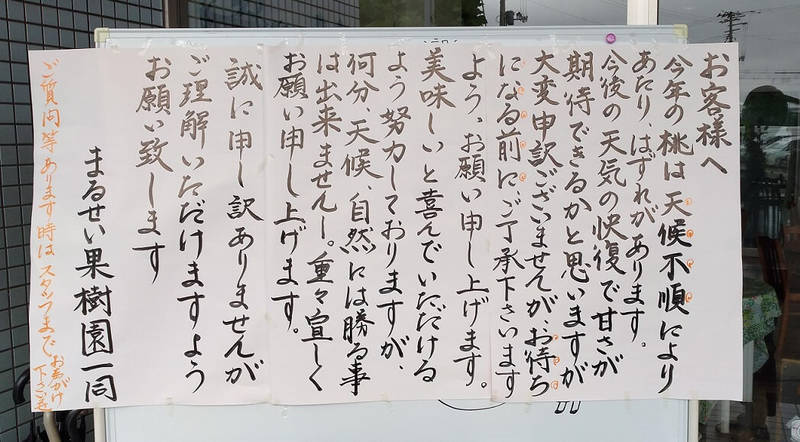 お客様へ
今年の桃は天候不順により
あたり、はずれがあります。
今後の天気の快復で甘さが
期待できるかと思いますが
大変申訳ございませんがお待ち
になる前にご了承下さいます
よう、お願い申し上げます。
美味しいと喜んでいただける
よう努力しておりますが、
何分、天候、自然には勝る事
は出来ませんし。重々宜しく
お願い申し上げます。
誠に申し訳ありませんが
ご理解いただけますよう
お願い致します
まるせい果樹園一同
ご質問等あります時はスタッフまでお声がけ
下さいませ